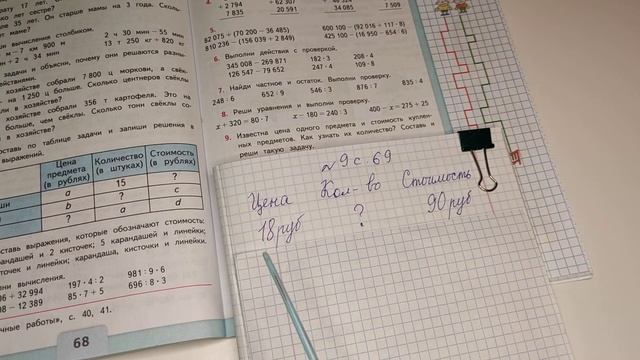 рату 17 лет.
ко лет сестре?
ле 35 лет. Он старше мамы на 3 года. Сколь-
ет маме?
ши вычисления столбиком.
м — 7 км 900 м 2 ч 30 мин — 55 мин
мин + 2 ч 34 мин 13 т 250 кг + 820 кг
задачи и объясни, почему они решаются разны-
действиями.
хозяйстве собрали 7 800 ц моркови, а свёк-
на 1 250 ц больше. Сколько центнеров свёклы
ли в хозяйстве?
хозяйстве собрали 356 т картофеля. Это на
больше, чем свёклы. Сколько тонн свёклы со-
в хозяйстве?
оставь по таблице задачи и запиши решения в
выражений.
Цена предмета (в рублях) Количество (в штуках) Стоимость (в рублях)
ши a 15 ?
b ? c
? a d
оставь выражения, которые обозначают стоимость:
рандашей и 2 кисточек; 5 карандашей и линейки;
сточек и линейки; карандаша, кисточки и линейки.
ни вычисления.
06 + 32 994 197 · 4 : 2 981 : 9 · 6
08 — 12 389 85 · 7 + 5 696 : 8 · 3
чные работы», с. 40, 41.
68
+ 2 794 + 62 307
7 835 20 591 34 085 7 509
5.
82 075 + (70 200 − 36 485) 600 100 − (92 016 + 117 · 8)
810 236 − (156 039 + 2 849) 425 100 − (16 950 − 654 : 6)
6. Выполни действия с проверкой.
345 008 − 269 871 182 · 3 208 · 4
126 547 − 79 652 247 · 4 109 · 8
7. Найди частное и остаток. Выполни проверку.
248 : 6 652 : 9 546 : 3 876 : 7 835 : 4
8. Реши уравнения и выполни проверку.
x + 320 = 80 · 7 x − 180 = 240 : 3 400 − x = 275 + 25
9. Известна цена одного предмета и стоимость куплен-
ных предметов. Как узнать их количество? Составь и
реши такую задачу.
№ 9 с. 69
Цена Кол-во Стоимость
18 руб ? 90 руб